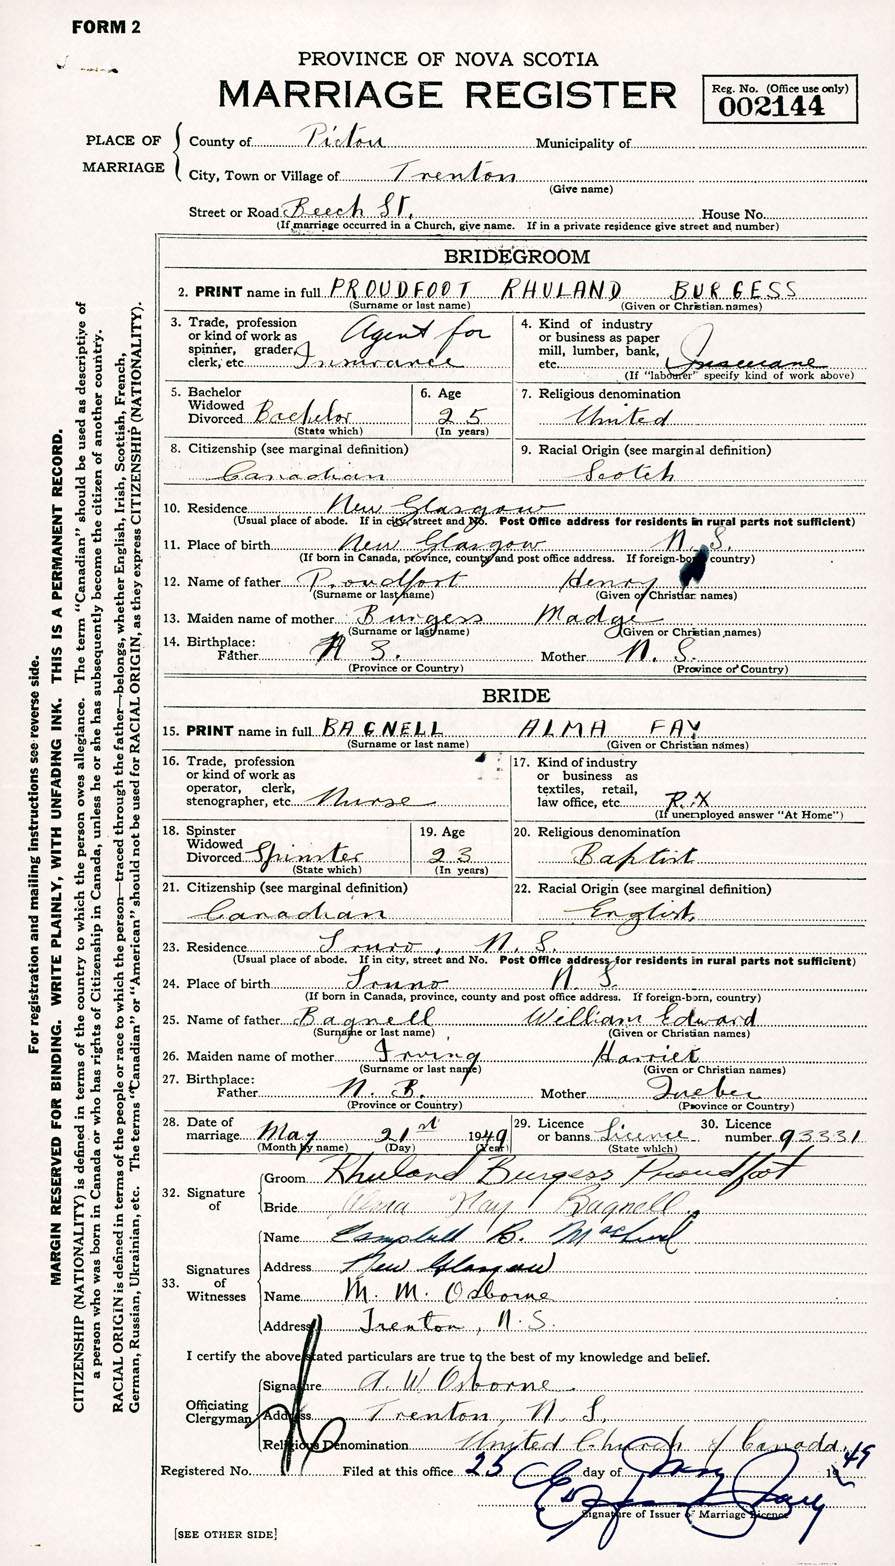 FORM 2
PROVINCE OF NOVA SCOTIA
MARRIAGE REGISTER
Reg. No. (Office use only)
002144
PLACE OF MARRIAGE
County of Pictou Municipality of
City, Town or Village of Trenton
(Give name)
Street or Road Beech St. House No.
(If marriage occurred in a Church, give name. If in a private residence give street and number)
BRIDEGROOM
2. PRINT name in full PROUDFOOT RHULAND BURGESS
(Surname or last name) (Given or Christian names)
3. Trade, profession or kind of work as spinner, grader, clerk, etc. Agent for Insurance
4. Kind of industry or business as paper mill, lumber, bank, etc. Insurance
(If "labourer" specify kind of work above)
5. Bachelor Widowed Divorced Bachelor
(State which)
6. Age 25
(In years)
7. Religious denomination
United
8. Citizenship (see marginal definition)
Canadian
9. Racial Origin (see marginal definition)
Scotch
10. Residence New Glasgow
(Usual place of abode. If in city, street and No. Post Office address for residents in rural parts not sufficient)
11. Place of birth New Glasgow N.S.
(If born in Canada, province, county and post office address. If foreign-born, country)
12. Name of father Proudfoot Henry
(Surname or last name) (Given or Christian names)
13. Maiden name of mother Burgess Madge
(Surname or last name) (Given or Christian names)
14. Birthplace:
Father N.S. Mother N.S.
(Province or Country) (Province or Country)
BRIDE
15. PRINT name in full BAGNELL ALMA FAY
(Surname or last name) (Given or Christian names)
16. Trade, profession or kind of work as operator, clerk, stenographer, etc. Nurse
17. Kind of industry or business as textiles, retail, law office, etc.
(If unemployed answer "At Home")
18. Spinster Widowed Divorced Spinster
(State which)
19. Age 23
(In years)
20. Religious denomination
Baptist
21. Citizenship (see marginal definition)
Canadian
22. Racial Origin (see marginal definition)
English
23. Residence Truro, N.S.
(Usual place of abode. If in city, street and No. Post Office address for residents in rural parts not sufficient)
24. Place of birth Truro N.S.
(If born in Canada, province, county and post office address. If foreign-born, country)
25. Name of father Bagnell William Edward
(Surname or last name) (Given or Christian names)
26. Maiden name of mother Irving Harriet
(Surname or last name) (Given or Christian names)
27. Birthplace:
Father N.B. Mother Quebec
(Province or Country) (Province or Country)
28. Date of marriage May 21st 1949
(Month by name) (Day) (Year)
29. Licence or banns Licence
(State which)
30. Licence number 93331
32. Signature of
Groom Rhuland Burgess Proudfoot
Bride Alma Fay Bagnell
33. Signatures of Witnesses
Name Campbell B.
Address New Glasgow
Name M. M. Osborne
Address Trenton, N.S.
I certify the above stated particulars are true to the best of my knowledge and belief.
Officiating Clergyman
Signature A. W. Osborne
Address Trenton, N.S.
Religious Denomination United Church of Canada
Registered No. Filed at this office 25 day of May 1949
Signature of Issuer of Marriage Licence
[SEE OTHER SIDE]
For registration and mailing instructions see reverse side.
MARGIN RESERVED FOR BINDING. WRITE PLAINLY, WITH UNFADING INK. THIS IS A PERMANENT RECORD.
CITIZENSHIP (NATIONALITY) is defined in terms of the country to which the person owes allegiance. The term "Canadian" should be used as descriptive of
a person who was born in Canada or who has rights of Citizenship in Canada, unless he or she has subsequently become the citizen of another country.
RACIAL ORIGIN is defined in terms of the people or race to which the person—traced through the father—belongs, whether English, Irish, Scottish, French,
German, Russian, Ukrainian, etc. The terms "Canadian" or "American" should not be used for RACIAL ORIGIN, as they express CITIZENSHIP (NATIONALITY).